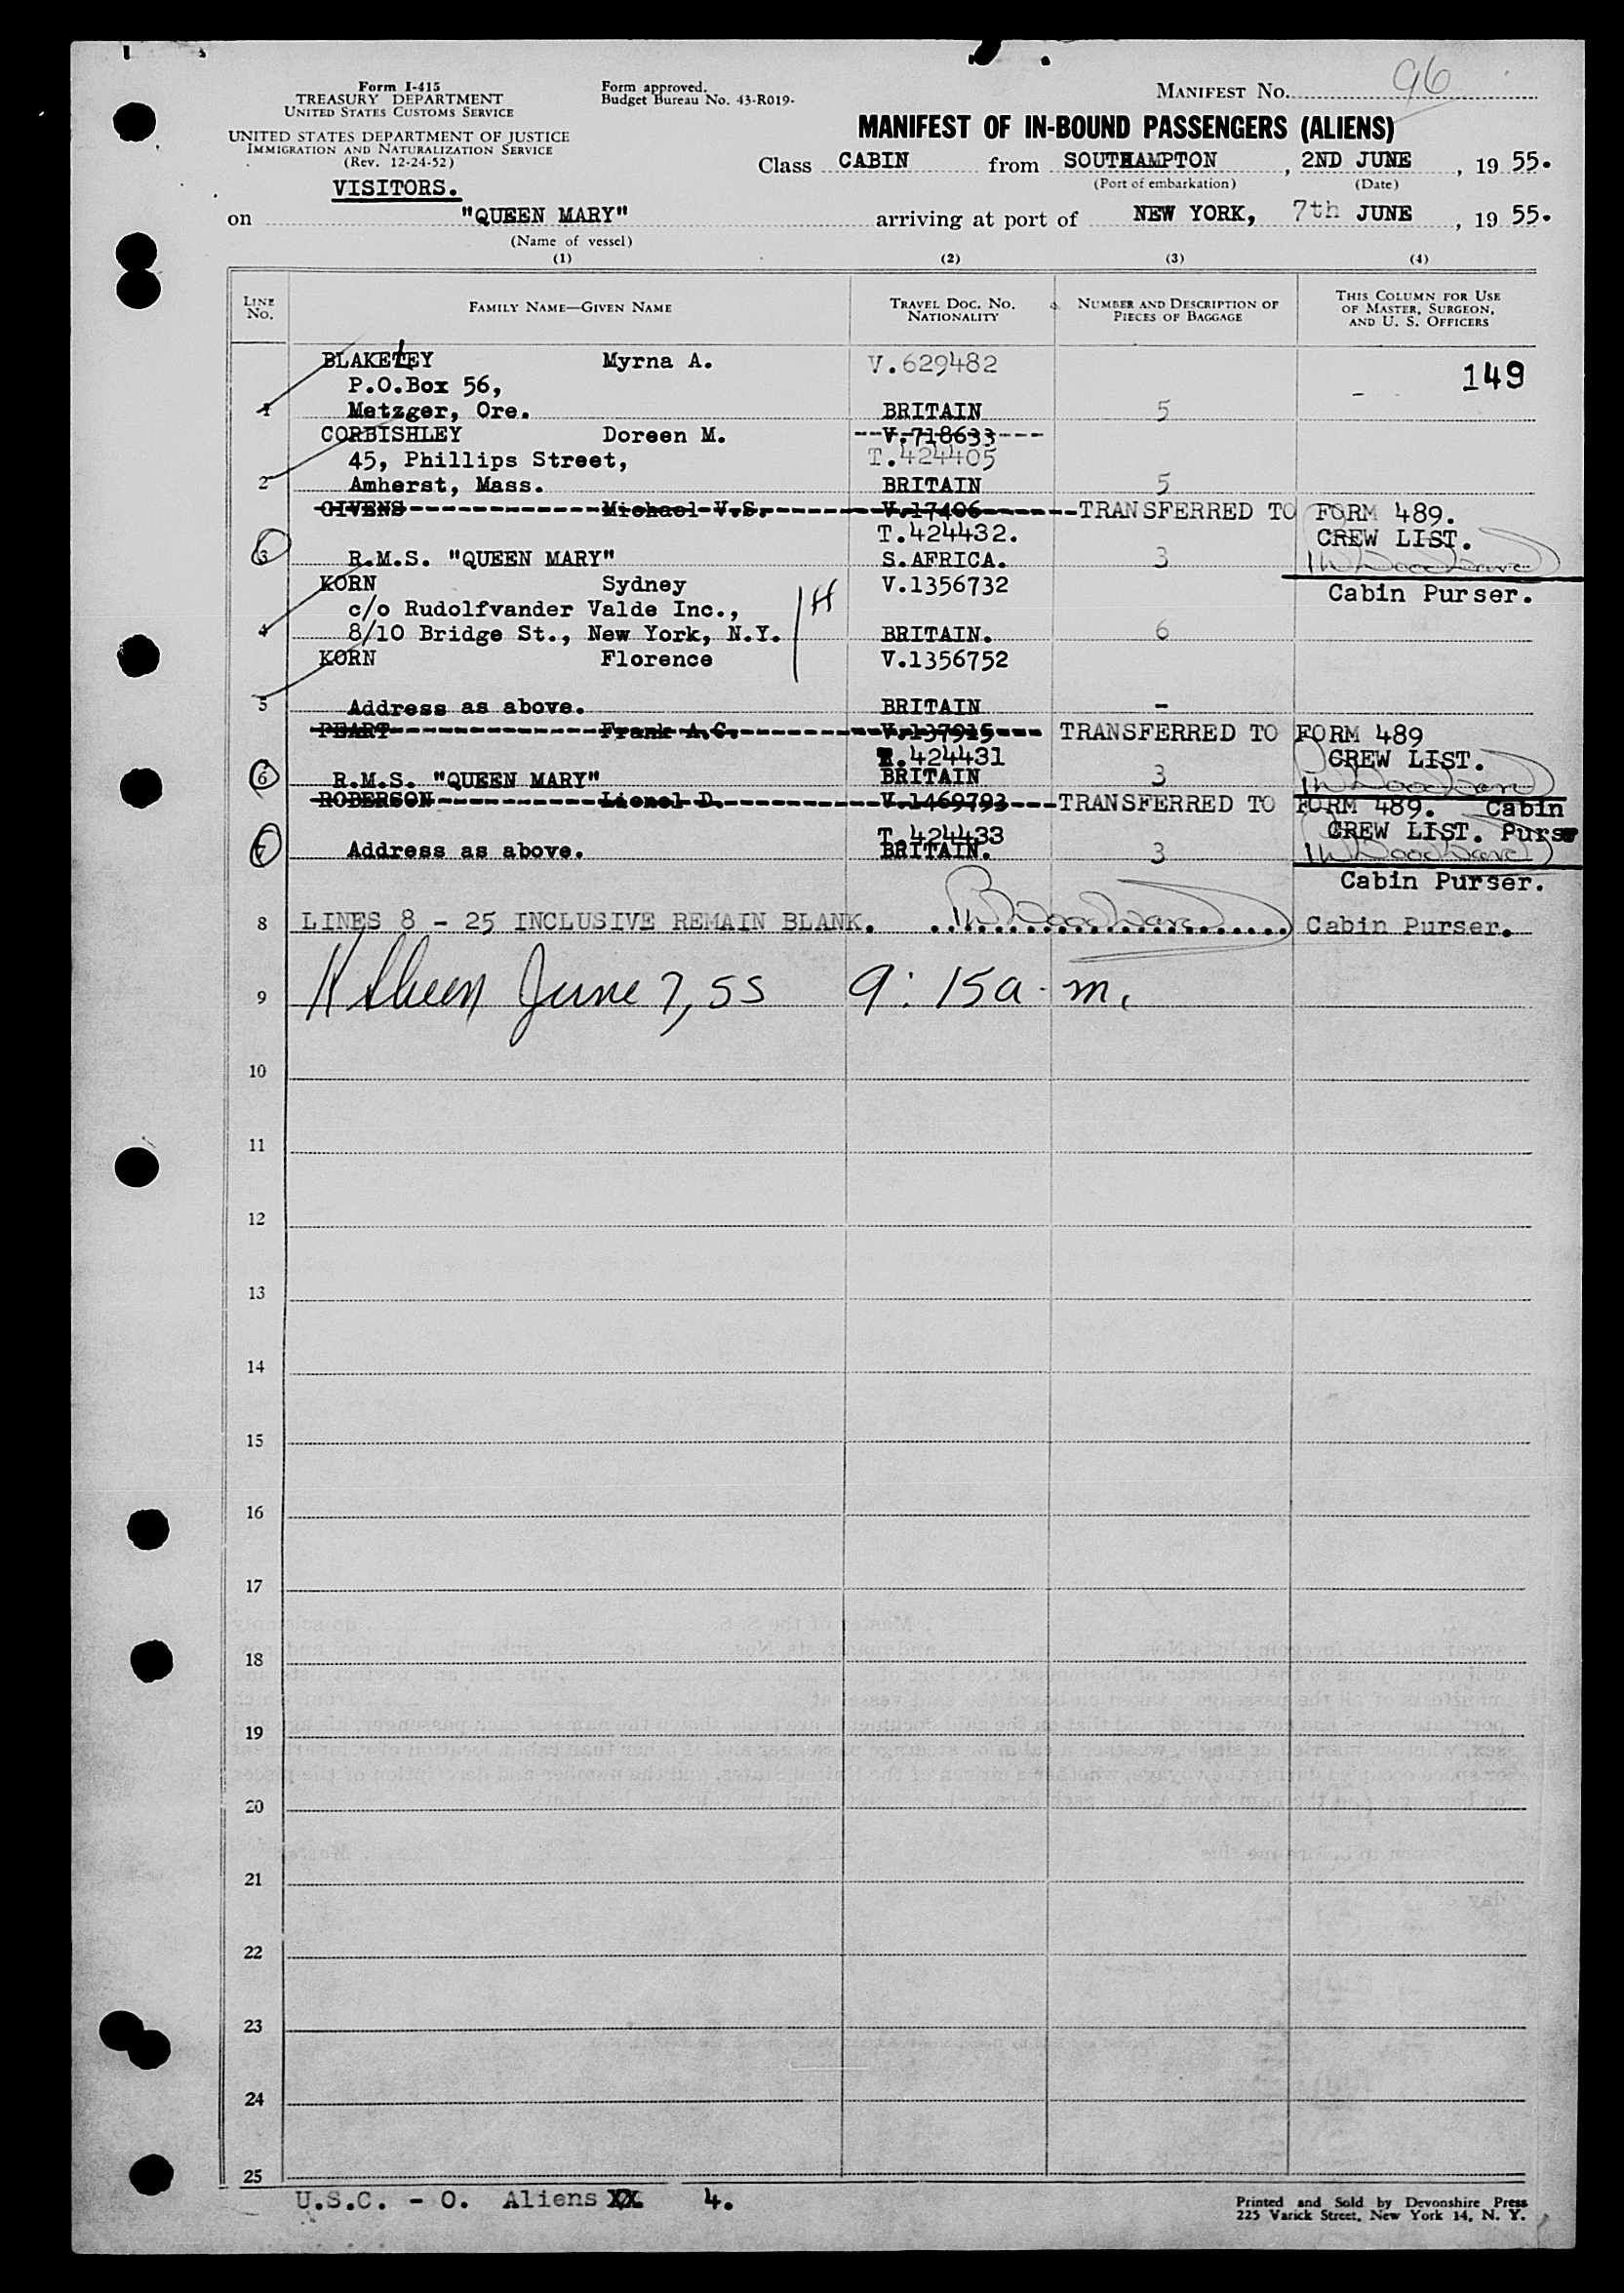 96
Form I-415
TREASURY DEPARTMENT
UNITED STATES CUSTOMS SERVICE
Form approved.
Budget Bureau No. 43-R019-
MANIFEST NO.
UNITED STATES DEPARTMENT OF JUSTICE
IMMIGRATION AND NATURALIZATION SERVICE
(Rev. 12-24-52)
MANIFEST OF IN-BOUND PASSENGERS (ALIENS)
Class CABIN from SOUTHAMPTON, 2ND JUNE, 19 55.
(Port of embarkation) (Date)
VISITORS.
on "QUEEN MARY" arriving at port of NEW YORK, 7th JUNE, 19 55.
(Name of vessel)
(1) (2) (3) (4)
LINE NO. FAMILY NAME—GIVEN NAME TRAVEL DOC. NO. NATIONALITY NUMBER AND DESCRIPTION OF PIECES OF BAGGAGE THIS COLUMN FOR USE OF MASTER, SURGEON, AND U. S. OFFICERS
BLAKELEY Myrna A. V.629482 149
P.O.Box 56,
1 Metzger, Ore. BRITAIN 5
CORBISHLEY Doreen M. --V.718633---
45, Phillips Street, T.424405
2 Amherst, Mass. BRITAIN 5
GIVENS Michael V.S. V.17406 TRANSFERRED TO FORM 489.
T.424432. CREW LIST.
3 R.M.S. "QUEEN MARY" S.AFRICA. 3
KORN Sydney V.1356732 Cabin Purser.
c/o Rudolfvander Valde Inc., H
4 8/10 Bridge St., New York, N.Y. BRITAIN. 6
KORN Florence V.1356752
5 Address as above. BRITAIN -
PEART Frank A.C. V.137915 TRANSFERRED TO FORM 489
T.424431 CREW LIST.
6 R.M.S. "QUEEN MARY" BRITAIN 3
ROBERSON Lionel D. V.1469793 TRANSFERRED TO FORM 489. Cabin
T.424433 CREW LIST. Purser
7 Address as above. BRITAIN. 3
Cabin Purser.
8 LINES 8 - 25 INCLUSIVE REMAIN BLANK. Cabin Purser.
9 June 7, 55 9:15 a.m.
10
11
12
13
14
15
16
17
18
19
20
21
22
23
24
25
U.S.C. - 0. Aliens XX 4.
Printed and Sold by Devonshire Press
225 Varick Street, New York 14, N. Y.